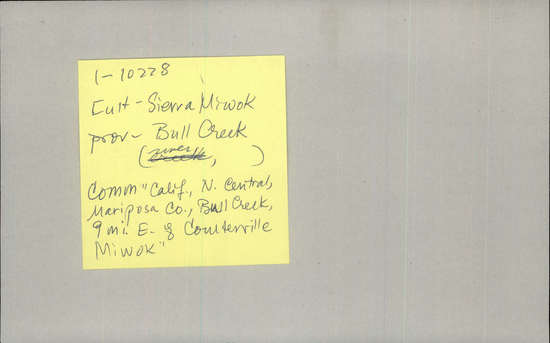 1-10228
Cult - Sierra Miwok
prov - Bull Creek
(river creek, )
Comm "Calif., N. Central,
Mariposa Co., Bull Creek,
9 mi. E. of Coulterville
Miwok"